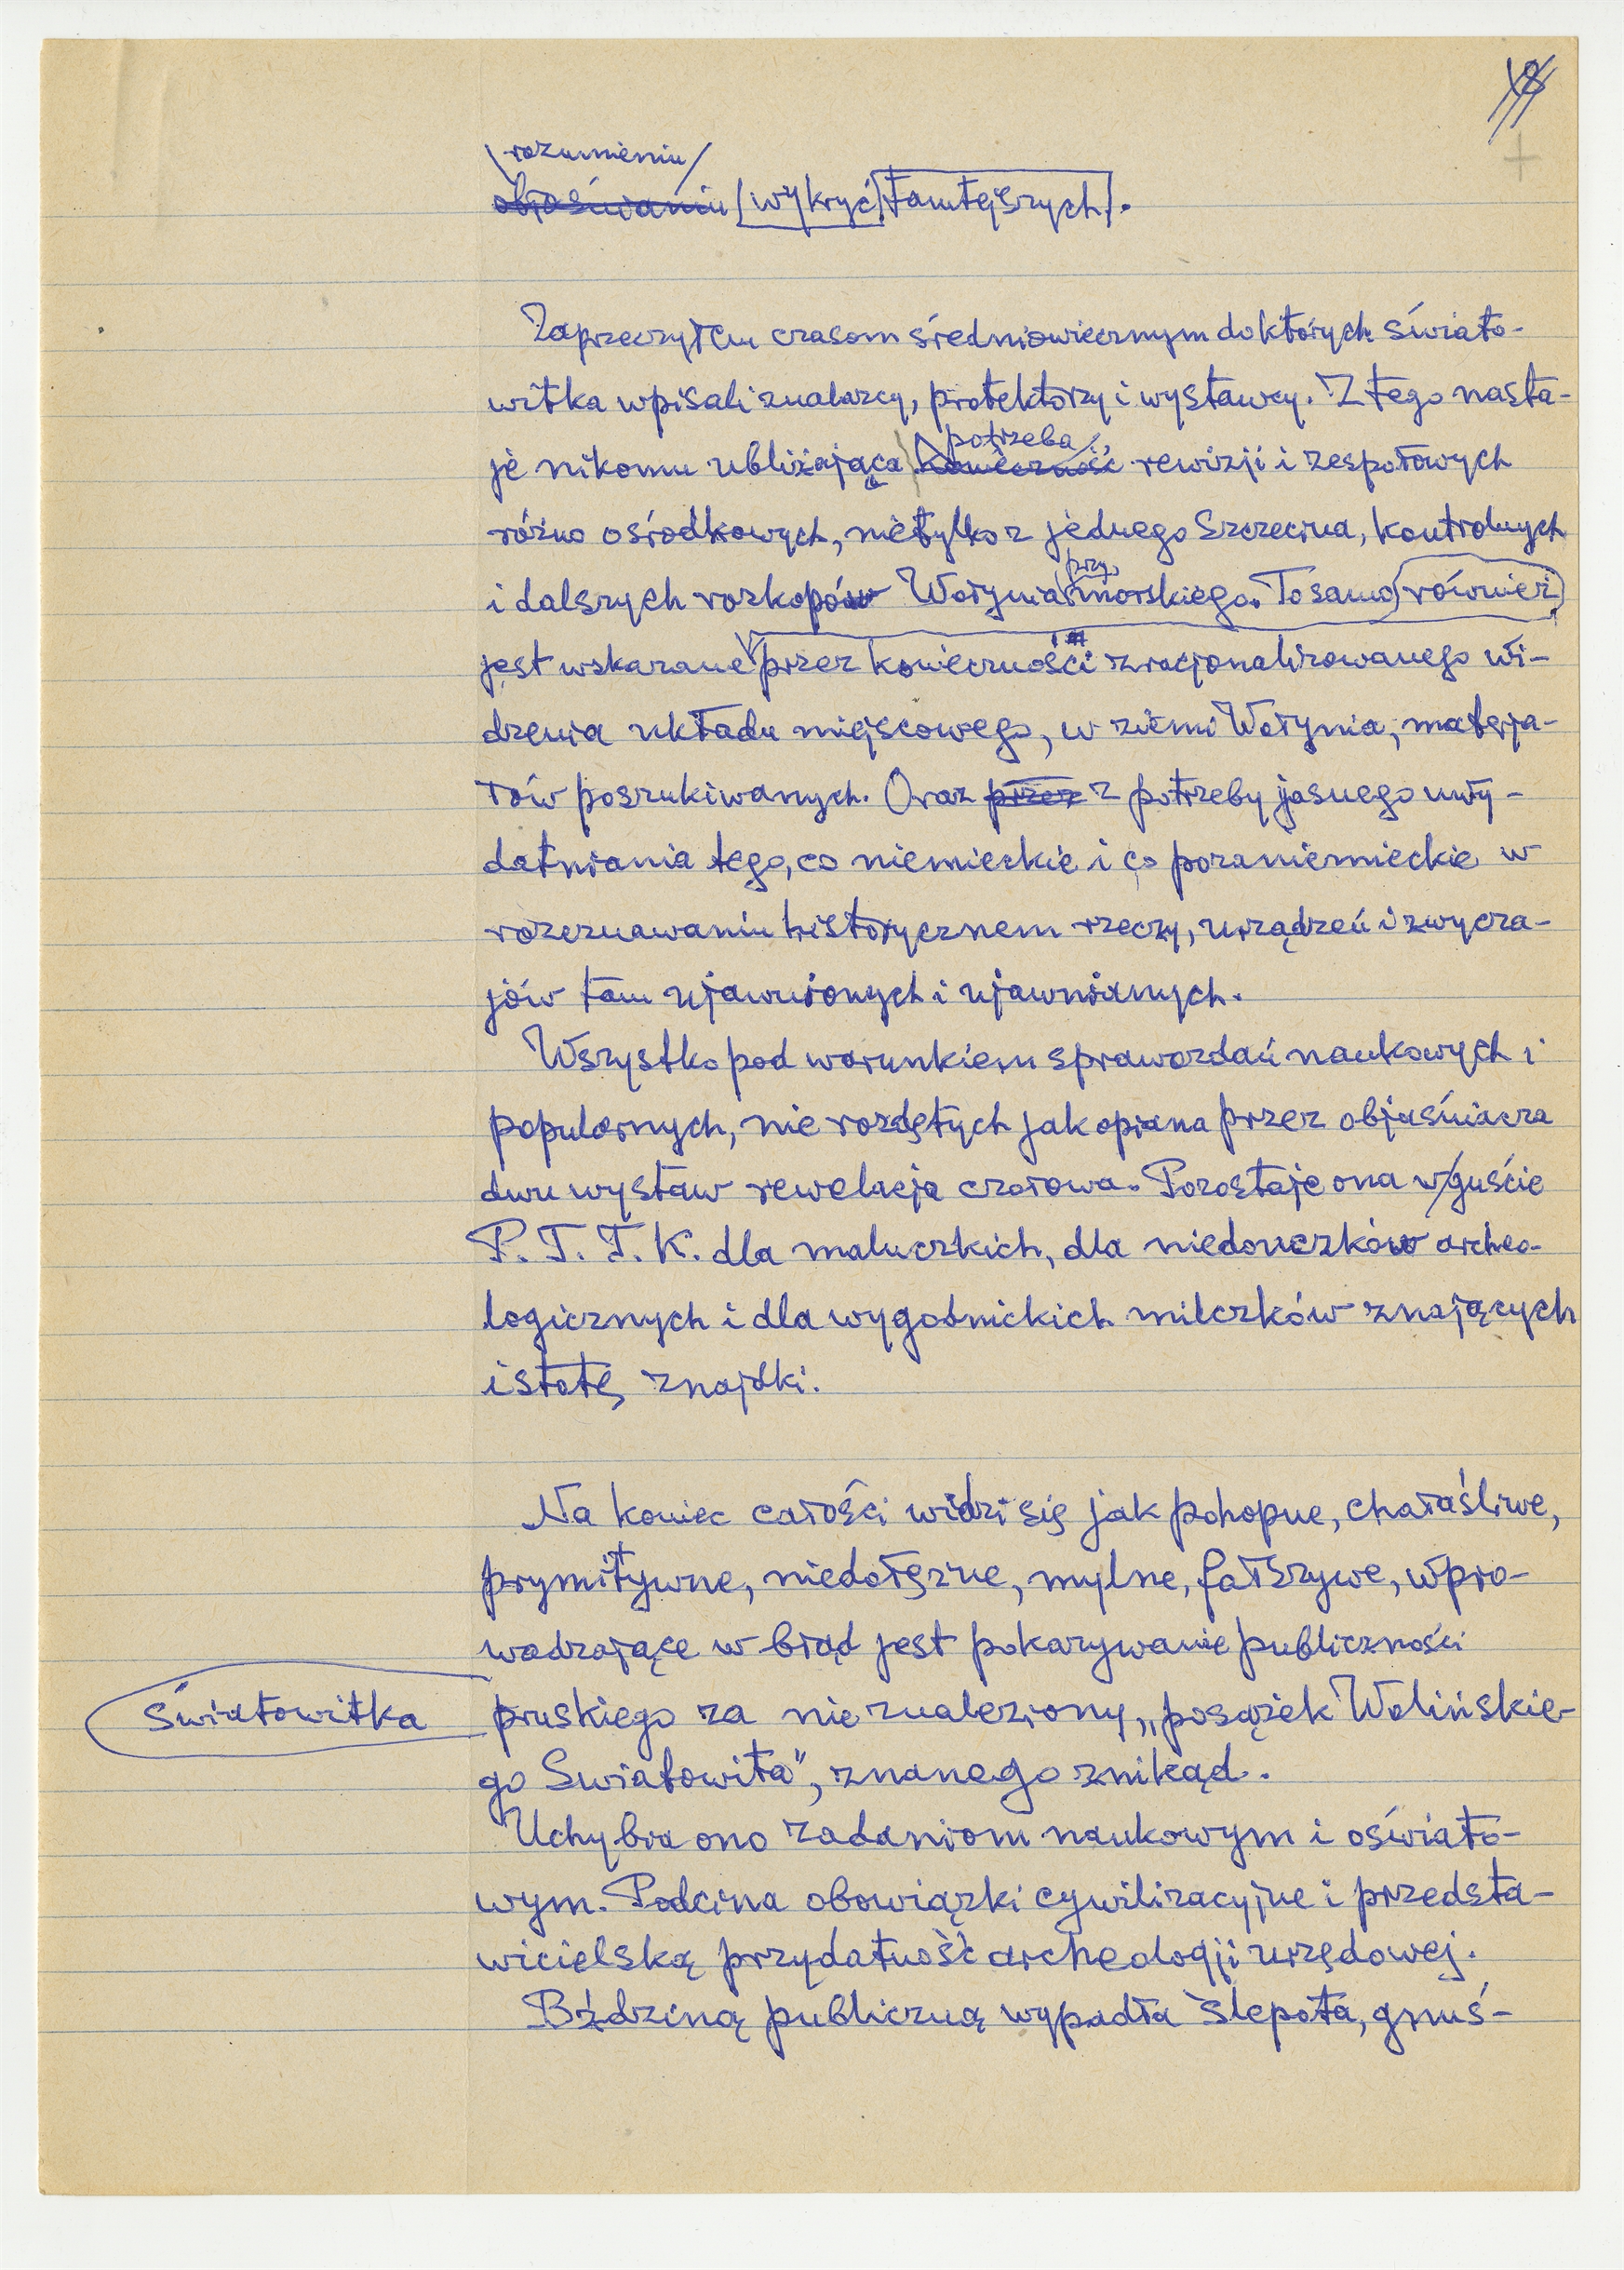 18
rozumieniu
objaśnianiu wykryć tamtejszych.
Zaprzeczyłem czasom średniowiecznym do których świato-
witka wpisali znalazcy, protektorzy i wystawcy. Z tego nasta-
potrzeba
je nikomu ubliżająca konieczność rewizji i zespołowych
różno ośrodkowych, nietylko z jednego Szczecina, kontrolnych
przy
i dalszych rozkopów Wołynia morskiego. To samo również
jest wskazane przez konieczności zracjonalizowanego wi-
dzenia układu miejscowego, w ziemi Wołynia, materja-
łów poszukiwanych. Oraz przez z potrzeby jasnego uwy-
datniania tego, co niemieckie i co pozaniemieckie w
rozeznawaniu historycznem rzeczy, urządzeń i zwycza-
jów tam ujawnionych i ujawnianych.
Wszystko pod warunkiem sprawozdań naukowych i
popularnych, nie rozdętych jak opiana przez objaśniacza
dwu wystaw rewelacja czołowa. Pozostaje ona w guście
P. T. T. K. dla maluczkich, dla niedouczków archeo-
logicznych i dla wygodnickich milczków znających
istotę znajdki.
Na koniec całości widzi się jak pohopne, chałaśliwe,
prymitywne, niedołężne, mylne, fałszywe, wpro-
wadzające w błąd jest pokazywanie publiczności
światowitka
pruskiego za nie znaleziony, „posążek Wolińskie-
go Swiatowita", znanego znikąd.
Uchybia ono zadaniom naukowym i oświato-
wym. Podcina obowiązki cywilizacyjne i przedsta-
wicielską przydatność archeologji urzędowej.
Bździną publiczną wypadła ślepota, gnuś-